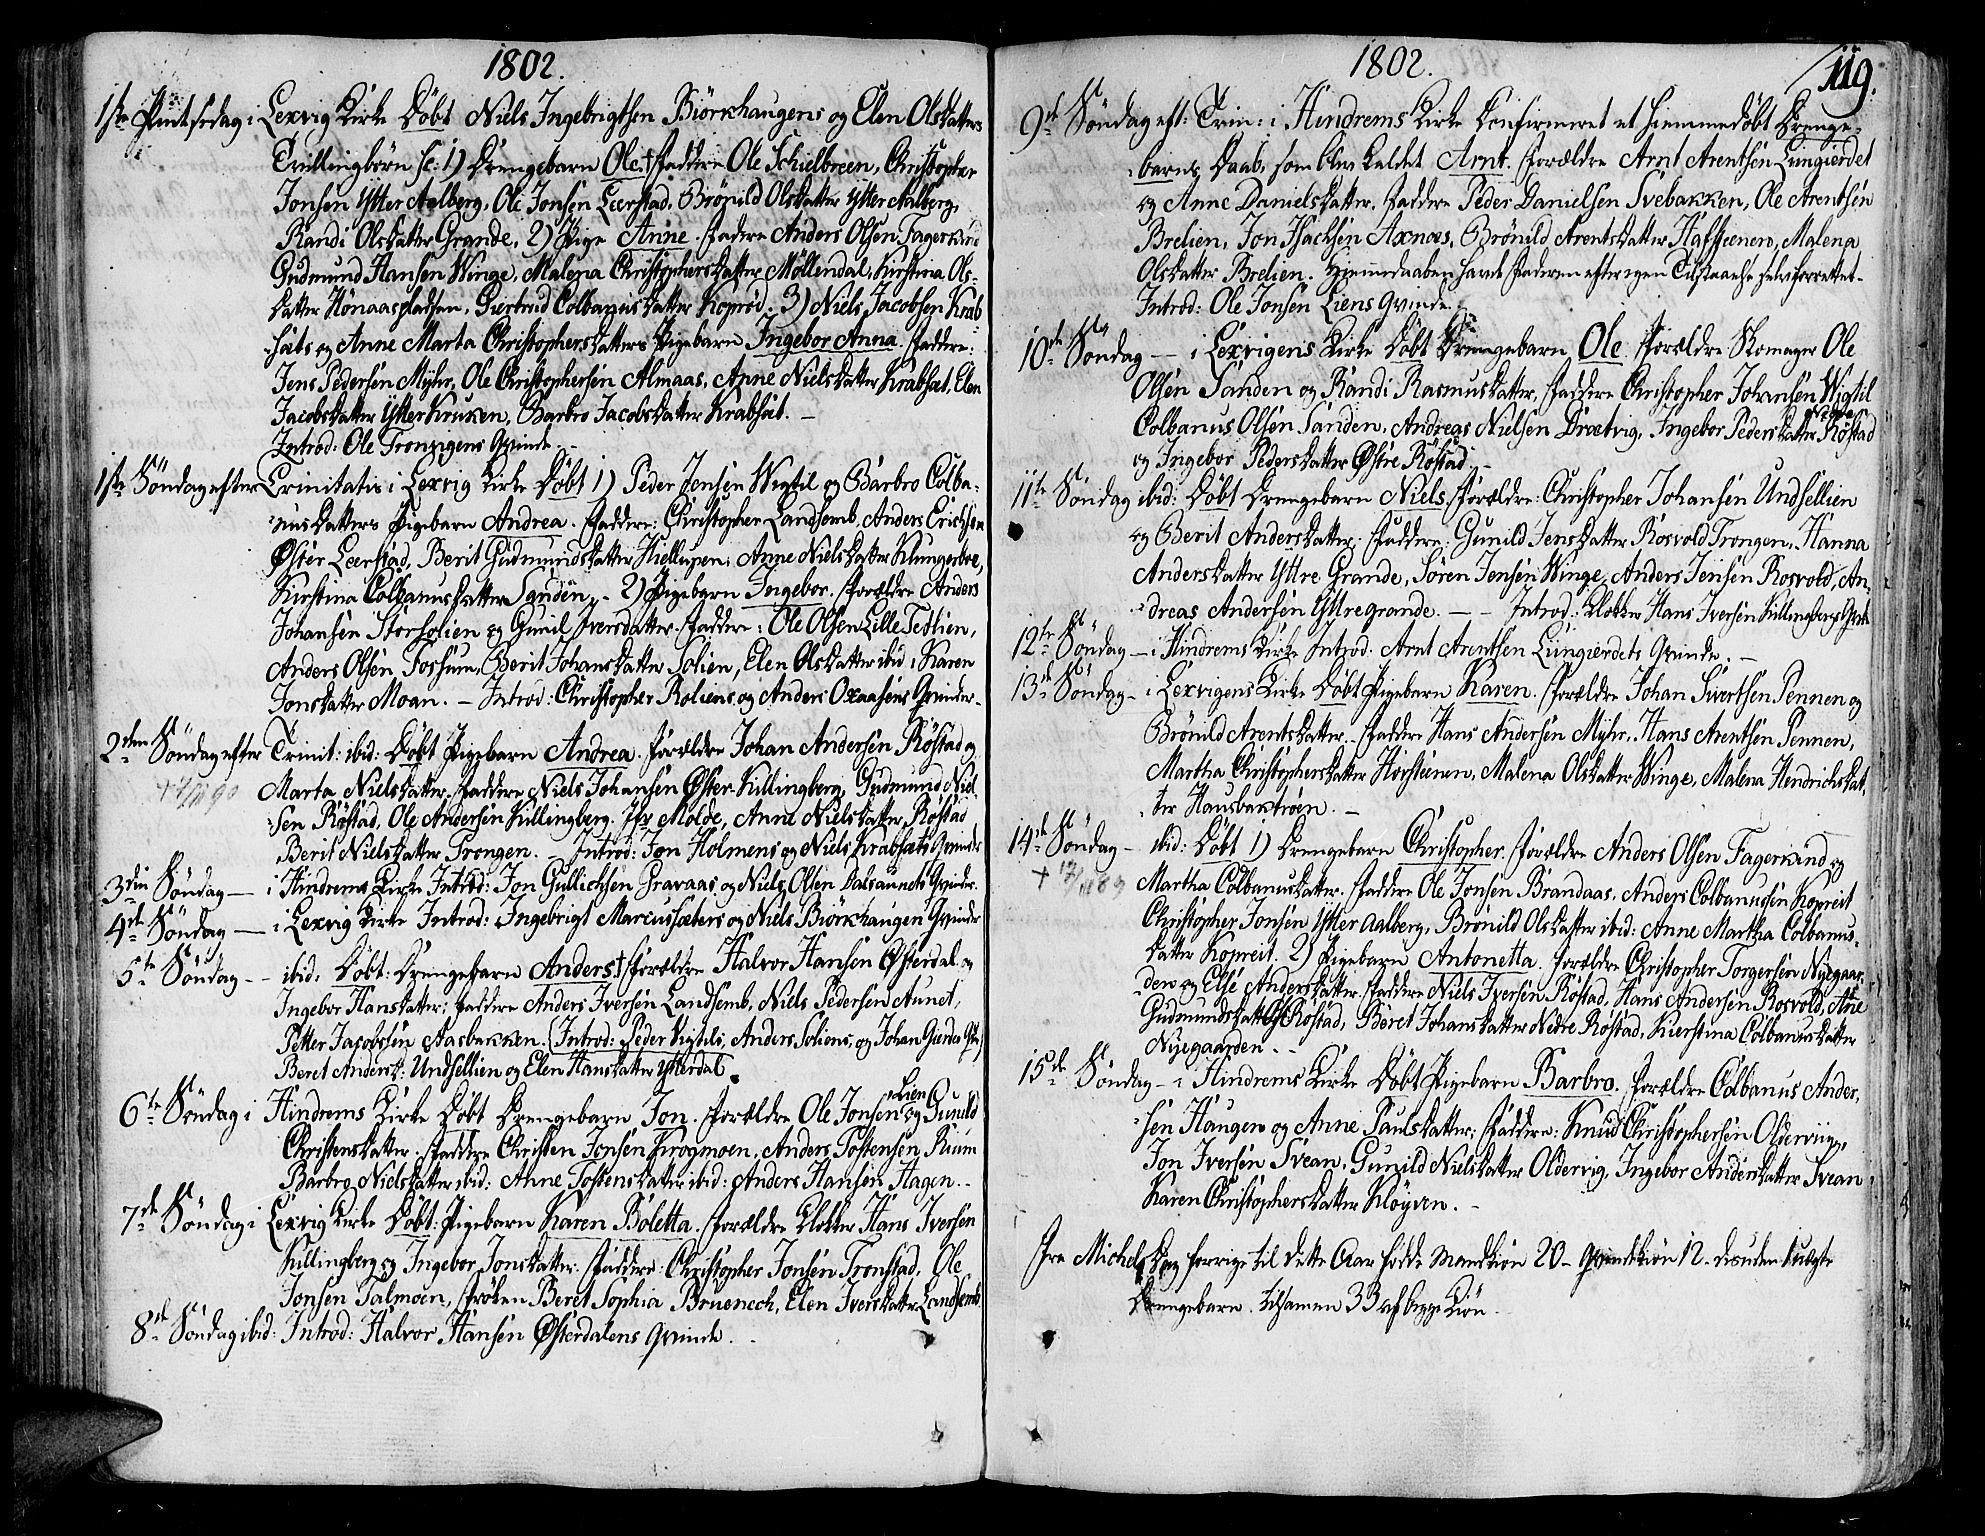 1802.
1ste Pintsedag i Lexvig Kirke Døbt Niels Ingebrigtsen Biörkhaugens og Elen Olsdatters
Tvillingbörn sc: 1) Drengebarn Ole † Faddere Ole Schielbreen, Christopher
Jonsen Ytter Aalberg, Ole Jonsen Leerstad, Brönild Olsdatter Ytter Aalberg,
Randi Olsdatter Grande, 2) Pige Anne. Faddere Anders Olsen Fagerland
Gudmund Hansen Winge, Malena Christophersdatter Møllendal, Kirstina Ols-
datter Hönaaspladsen, Giertrud Colbanusdatter Koprod. 3) Niels Jacobsen Krab-
sæts og Anne Marta Christophersdatters Pigebarn Ingebor Anna. Faddere:
Jens Pedersen Myhr, Ole Christophersen Almaas, Anne Nielsdatter Krabsæt, Elen
Jacobsdatter Ytter Kruken, Barbro Jacobsdatter Krabsæt. —
Introd: Ole Tronvigens Qvinde. —
1ste Söndag efter Trinitatis i Lexvig Kirke Døbt 1) Peder Jensen Wigtil og Barbro Colba-
nusdatters Pigebarn Andrea. Faddere: Christopher Landsemb, Anders Erichsen
Øster Leerstad, Berit Gudmundsdatter Hellupen, Anne Nielsdatter Klungerboe,
Kirstina Colbanusdatter Sanden. - 2) Pigebarn Ingebor. Forældre Anders
Johansen Storsolien og Gunil Iversdatter. Faddere: Ole Olsen Lille Tedlien,
Anders Olsen Fossum, Berit Johansdatter Solien, Elen Olsdatter ibid: Karen
Jonsdatter Moan. — Introd: Christopher Roliens og Anders Oxaasens Qvinder.
2den Söndag efter Trinit: ibid: Døbt Pigebarn Andrea. Forældre Johan Andersen Röstad og
Marta Nielsdatter. Faddere Niels Johansen Øster Killingberg, Gudmund Niel-
sen Röstad, Ole Andersen Killingberg. Molde, Anne Nielsdatter Röstad
Berit Nielsdatter Trongen. Introd: Jon Holmens og Niels Krabsæts Qvinder
3die Söndag — i Hindrems Kirke Introd: Jon Gullichsen Gravaas og Niels Olsen Dalsaunets Qvinder.
4de Söndag — i Lexvig Kirke Introd: Ingebrigt Marcussæters og Niels Biörkhaugen Qvinder
5te Söndag — ibid: Døbt: Drengebarn Anders † Forældre Halvor Hansen Østerdal og
Ingebor Hansdatter; Faddere Anders Iversen Landsemb, Niels Pedersen Aunet,
Petter Jacobsen Aasbakken. (Introd: Peder Vigtils, Anders Soliens, og Johan Q:)
Beret Andersd: Undsellien og Elen Hansdatter Ytterdal.
6te Söndag i Hindrems Kirke Døbt Drengebarn Jon. Forældre Ole Jonsen Lien og Gunild
Christensdatter. Faddere Christen Jonsen Krogmoen, Anders Tostensen Ruum
Barbro Nielsdatter ibid: Anne Tostensdatter ibid: Anders Hansen Hagen. -
7de Söndag i Lexvig Kirke Döbt: Pigebarn Karen Boletta. Forældre Klokker Hans Iversen
Killingberg og Ingebor Jonsdatter. Faddere: Christopher Jonsen Tronstad, Ole
Jonsen Salmoen, Fröken Beret Sophia Bruenech, Elen Iversdatter Landsemb
8de Söndag ibid: Introd: Halvor Hansen Østerdalens Qvinde. -
1802.
119.
9de Söndag eft: Trin: i Hindrems Kirke Confirmeret et hiemmedöbt Drenge-
barns Daab, som blev kaldet Arnt. Forældre Arnt Arentsen Lungierdet
og Anne Danielsdatter. Faddere Peder Danielsen Svebakken, Ole Arentsen
Brelien, Jon Isachsen Axnæs, Brönild Arentsdatter Hafsteenen, Malena
Olsdatter Brelien. Hiemmedaaben havde Faderen efter egen Tilstaaelse selv forrettet.
Introd: Ole Jonsen Liens Qvinde.
10de Söndag — i Lexvigens Kirke Døbt Drengebarn Ole. Forældre Skomager Ole
Olsen Sanden og Randi Rasmusdatter, Faddere Christopher Johansen Wigtil
Colbanus Olsen Sanden, Andreas Nielsen Drætvig, Ingebor Pedersdatter Nedre Röstad
og Ingebor Pedersdatter Østre Röstad. -
11te Söndag ibid: Døbt Drengebarn Niels. Forældre: Christopher Johansen Undsellien
og Berit Andersdatter; Faddere: Gunild Jensdatter Rosvold Trongen, Hanna
Andersdatter Yttre Grande, Sören Jensen Winge, Anders Jensen Rosvold, An-
dreas Andersen Yttregrande. — — Introd: Klokker Hans Iversen Killingbergs Qvinde
12te Söndag — i Hindrems Kirke Introd: Arnt Arentsen Lungierdets Qvinde. —
13de Söndag — i Lexvigens Kirke Døbt Pigebarn Karen. Forældre Johan Sivertsen Pennen og
Brönild Arentsdatter. - Faddere Hans Andersen Myhr, Hans Arentsen Pennen,
Martha Christophersdatter Horsteenen, Malena Olsdatter Winge, Malena Hendrichsdat-
ter Hausbaktröen. —
14de Söndag — ibid: Døbt 1) Drengebarn Christopher. Forældre Anders Olsen Fagerland og
Martha Colbanusdatter. Faddere Ole Jonsen Brandaas, Anders Colbanussen Kopreit
Christopher Jonsen Ytter Aalberg, Brönild Olsdatter ibid: Anne Martha Colbanus-
datter Kopreit. 2) Pigebarn Antonetta. Forældre Christopher Torgersen Nyegaar-
den og Else Andersdatter. Faddere Niels Iversen Röstad, Hans Andersen Rosvold, Ane
Gudmundsdatter Röstad, Beret Johansdatter Nedre Röstad, Kierstina Colbanusdatter
Nyegaarden. -
15de Söndag — i Hindrems Kirke Døbt Pigebarn Barbro. Forældre Colbanus Ander-
sen Haugen og Anne Paulsdatter; Faddere: Knud Christophersen Oldervig,
Jon Iversen Svean, Gunild Nielsdatter Oldervig, Ingebor Andersdatter Svean
Karen Christophersdatter Klöyven. -
Fra Michels Dag forrige til dette Aar fødde Mandkiön 20 - Qvindekiön 12 - desuden 1 uægte
Drengebarn. tilsamen 33 af begge Kiön.